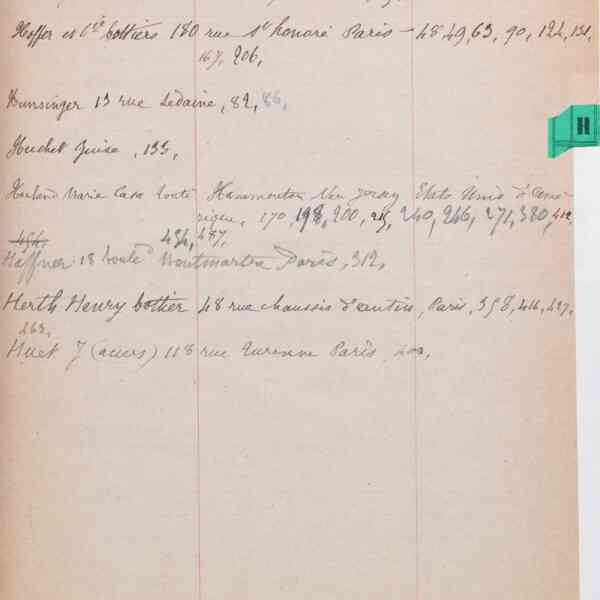 Hoffer et Cie bottiers 180 rue St honoré Paris - 48, 49, 63, 90, 124, 131,
167, 206,
H
Hunsinger 13 rue Sedaine, 82, 86,
Huchet Guise, 133,
Howland Marie Casa Tonti Hammonton New Jersey Etats Unis d'Amé-
rique, 170, 198, 200, 215, 240, 246, 271, 380, 412,
454, 434, 487,
Haffner 18 boulevd Montmartre Paris, 312,
Herth Henry bottier 48 rue chaussée d'antin, Paris, 358, 416, 437,
463,
Huet J (aciers) 118 rue Turenne Paris 400,